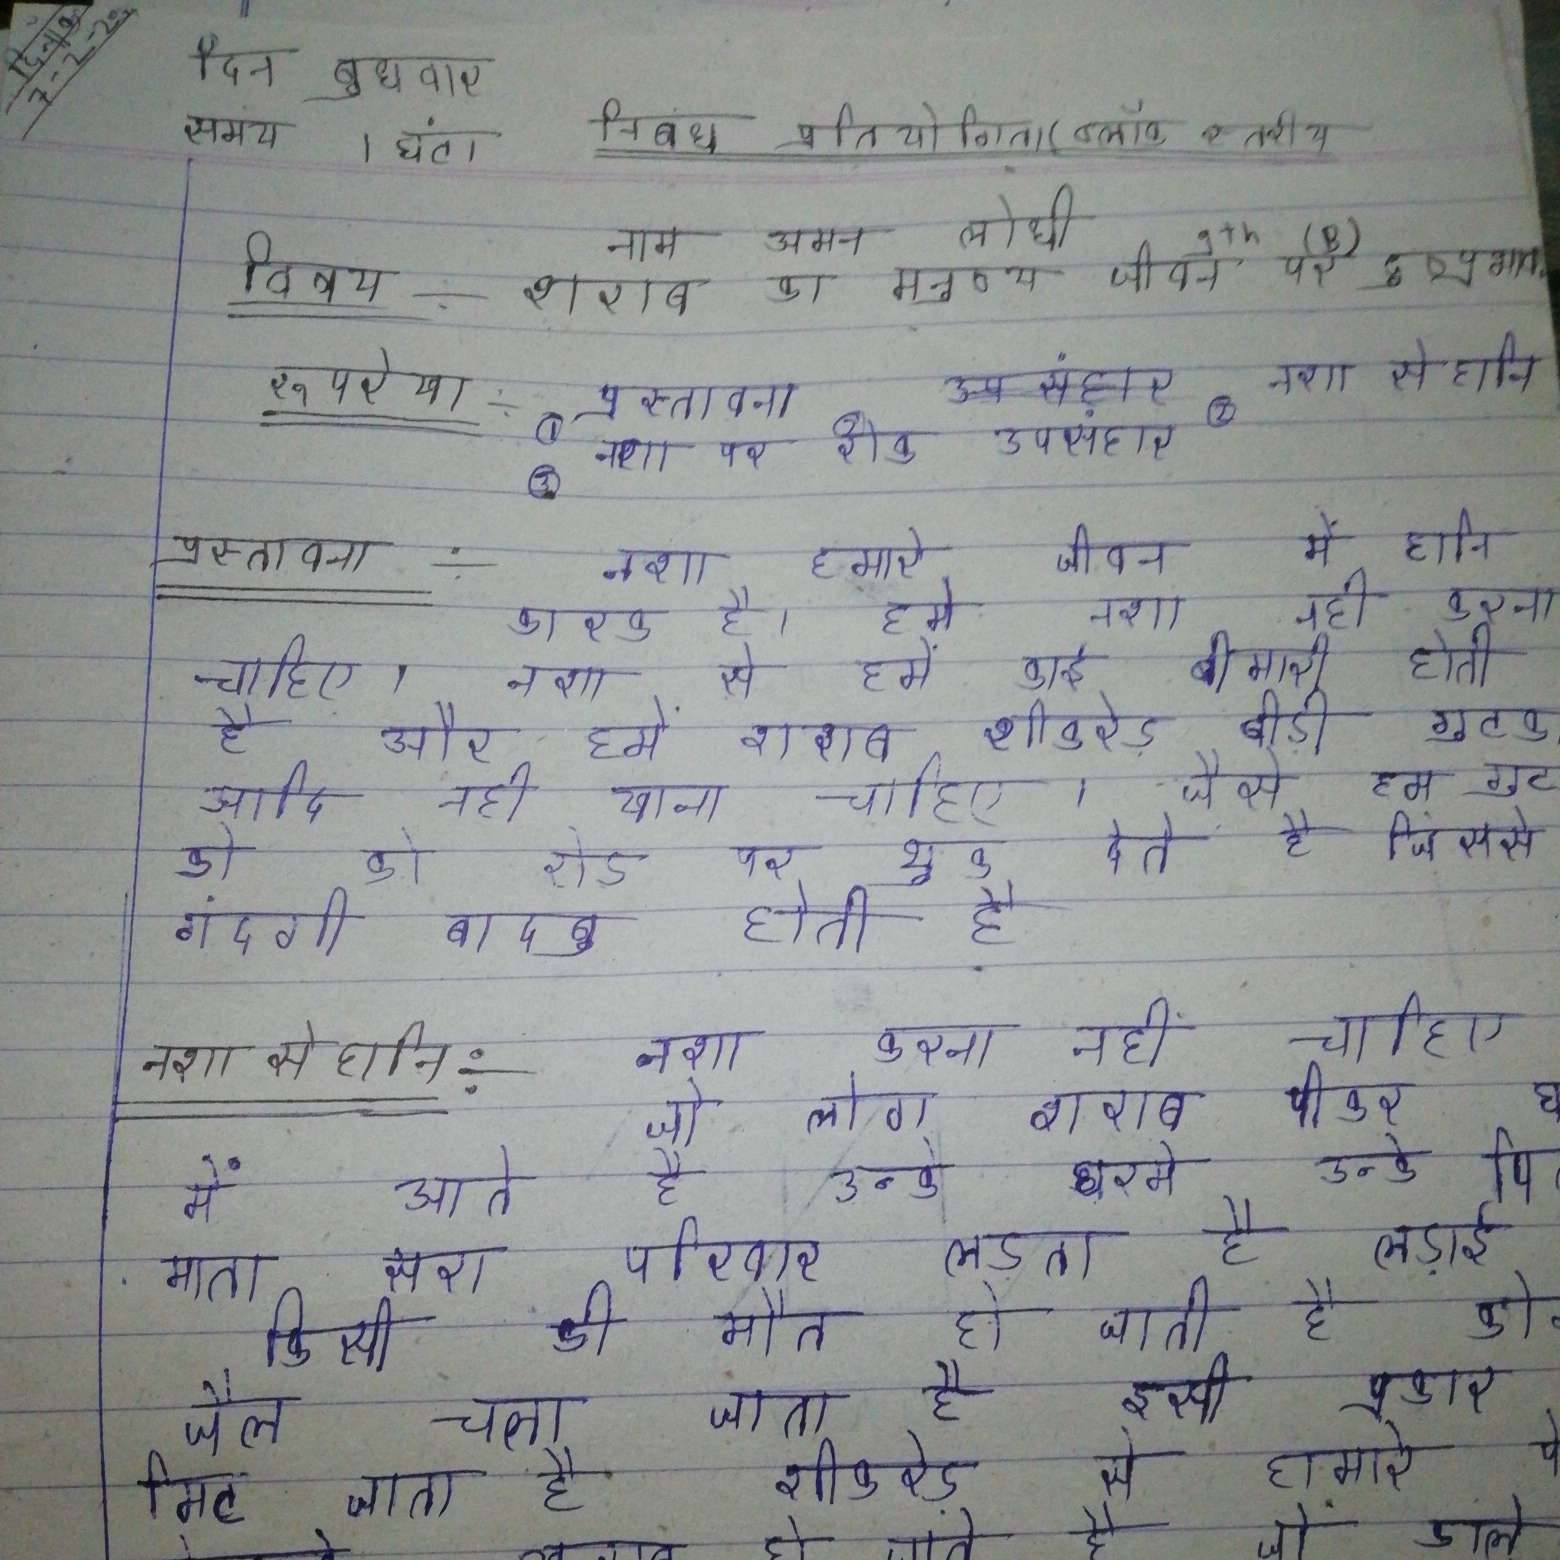 दिनांक
7-2-20
दिन बुधवार
समय 1 घंटा निबंध प्रतियोगिता (ब्लॉक स्तरीय
नाम अमन लोधी 9th (B)
विषय - शराब का मनुष्य जीवन पर दुष्प्रभाव
रूपरेखा ÷ ① प्रस्तावना उपसंहार ② नशा से हानि
③ नशा पर रोक उपसंहार
प्रस्तावना ÷ नशा हमारे जीवन में हानि
कारक है। हमे नशा नही करना
चाहिए। नशा से हमें काई बीमारी होती
है और हमें शराब शीकरेड़ बीड़ी गुटका
आदि नही खाना चाहिए। जैसे हम गुट
को को रोड पर थुक देते है जिससे
गंदगी बादबु होती है
नशा से हानि ÷ नशा करना नहीं चाहिए
जो लोग शराब पीकर घ
में आते है उन्के घरमे उन्के पि
माता सारा परिवार लड़ता है लड़ाई
किसी की मौत हो जाती है को
जैल चला जाता है इसी प्रकार
मिट जाता है शीकरेड़ से हामारे
हो जाते है जो काले